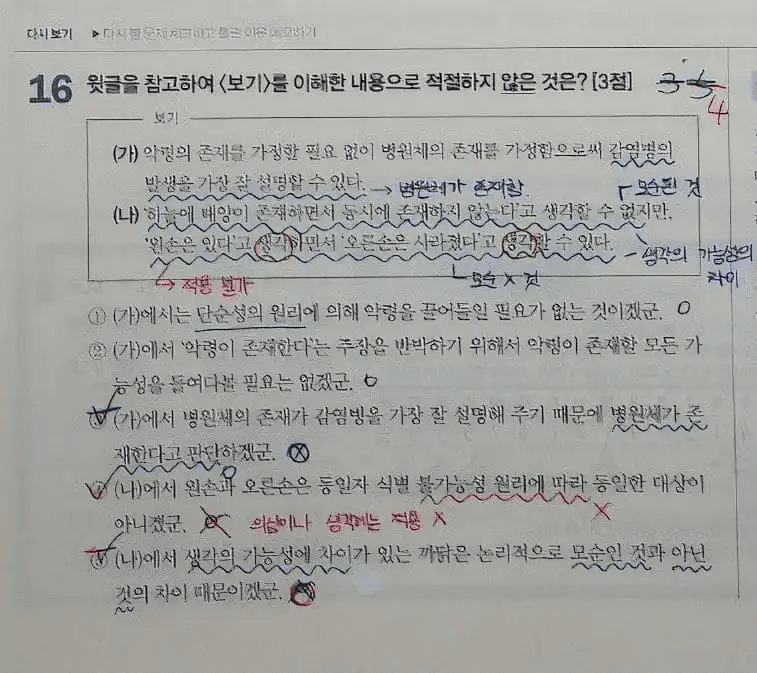 다시 보기 ▶ 다시 볼 문제 체크하고 틀린 이유 메모하기
16 윗글을 참고하여 <보기>를 이해한 내용으로 적절하지 않은 것은? [3점] 3 5 4
보기
(가) 악령의 존재를 가정할 필요 없이 병원체의 존재를 가정함으로써 감염병의
발생을 가장 잘 설명할 수 있다. → 병원체가 존재함. 모순된 것
(나) '하늘에 태양이 존재하면서 동시에 존재하지 않는다'고 생각할 수 없지만,
'왼손은 있다'고 생각하면서 '오른손은 사라졌다'고 생각할 수 있다. - 생각의 가능성의
차이
→ 적용 불가 모순 X 것
① (가)에서는 단순성의 원리에 의해 악령을 끌어들일 필요가 없는 것이겠군. O
② (가)에서 '악령이 존재한다'는 주장을 반박하기 위해서 악령이 존재할 모든 가
능성을 들여다볼 필요는 없겠군. O
③ (가)에서 병원체의 존재가 감염병을 가장 잘 설명해 주기 때문에 병원체가 존
재한다고 판단하겠군. X
④ (나)에서 왼손과 오른손은 동일자 식별 불가능성 원리에 따라 동일한 대상이
아니겠군. 의심이나 생각에는 적용 X X
⑤ (나)에서 생각의 가능성에 차이가 있는 까닭은 논리적으로 모순인 것과 아닌
것의 차이 때문이겠군.